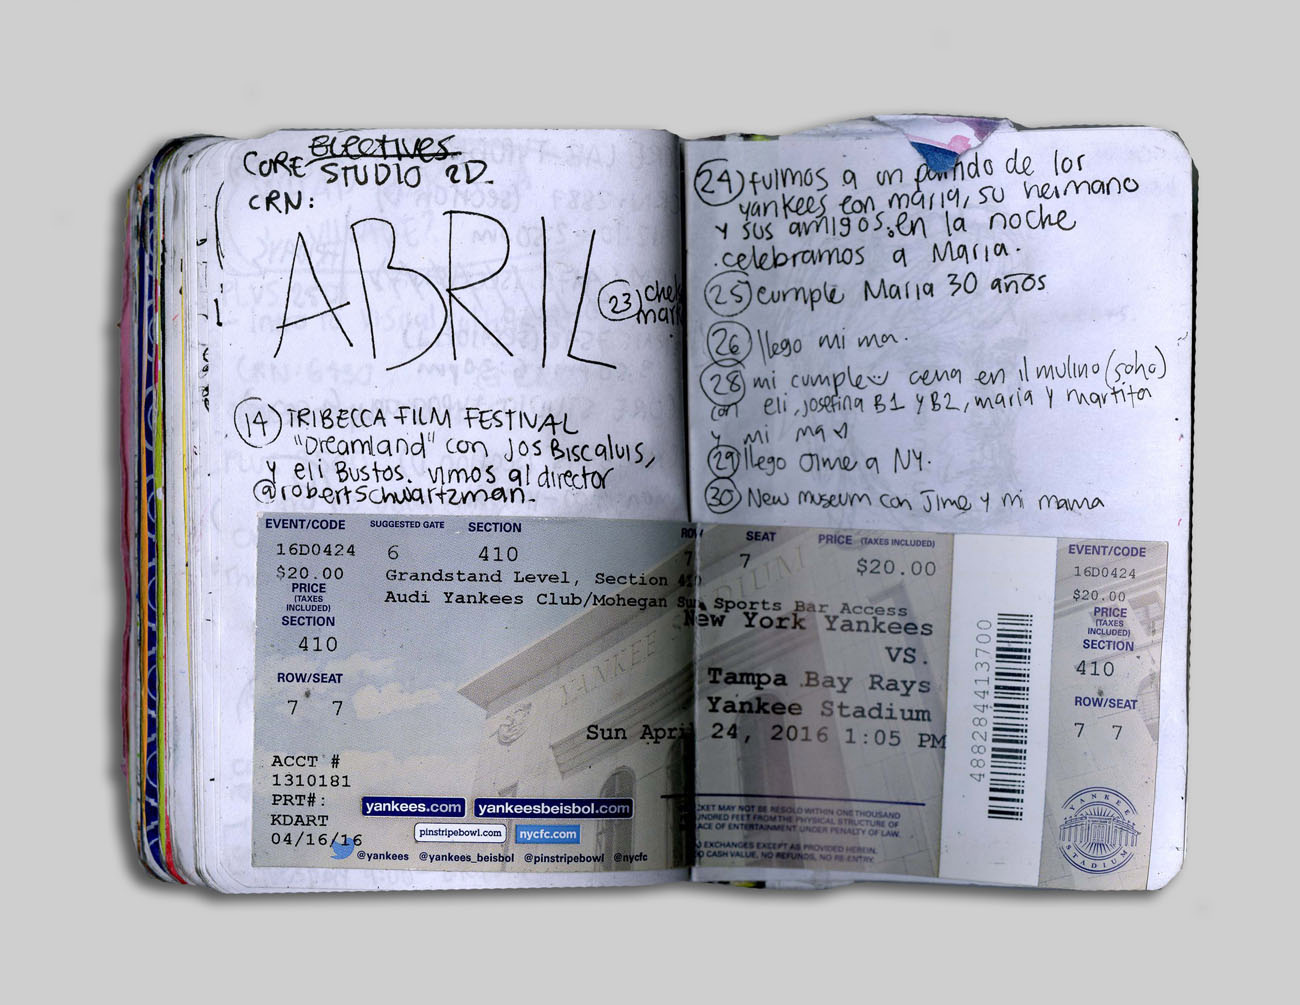 Electives
CORE STUDIO 2D.
CRN:
ABRIL
23
14 TRIBECCA FILM FESTIVAL
"Dreamland" con Jos Biscaluis,
y eli Bustos. vimos al director
@robertschwartzman.
24 fuimos a un partido de los
yankees con maria, su hermano
y sus amigos. en la noche
celebramos a Maria.
25 cumple Maria 30 años
26 llego mi ma.
28 mi cumple cena en il mulino (soho)
con eli, josefina B1 y B2, maria y martita
y mi ma
29 llego Jime a NY.
30 New museum con Jime y mi mama
EVENT/CODE SUGGESTED GATE SECTION ROW SEAT PRICE (TAXES INCLUDED)
16D0424 6 410 7 7 $20.00
$20.00 Grandstand Level, Section 410
PRICE
(TAXES
INCLUDED)
Audi Yankees Club/Mohegan Sun Sports Bar Access
SECTION
410
New York Yankees
VS.
ROW/SEAT
7 7
Tampa Bay Rays
Yankee Stadium
Sun April 24, 2016 1:05 PM
ACCT #
1310181
PRT#:
KDART
04/16/16
yankees.com yankeesbeisbol.com
pinstripebowl.com nycfc.com
@yankees @yankees_beisbol @pinstripebowl @nycfc
YANKEE STADIUM
TICKET MAY NOT BE RESOLD WITHIN ONE THOUSAND
HUNDRED FEET FROM THE PHYSICAL STRUCTURE OF
PLACE OF ENTERTAINMENT UNDER PENALTY OF LAW.
NO EXCHANGES EXCEPT AS PROVIDED HEREIN.
NO CASH VALUE, NO REFUNDS, NO RE-ENTRY.
4882844413700
EVENT/CODE
16D0424
$20.00
PRICE
(TAXES
INCLUDED)
SECTION
410
ROW/SEAT
7 7
YANKEE
STADIUM